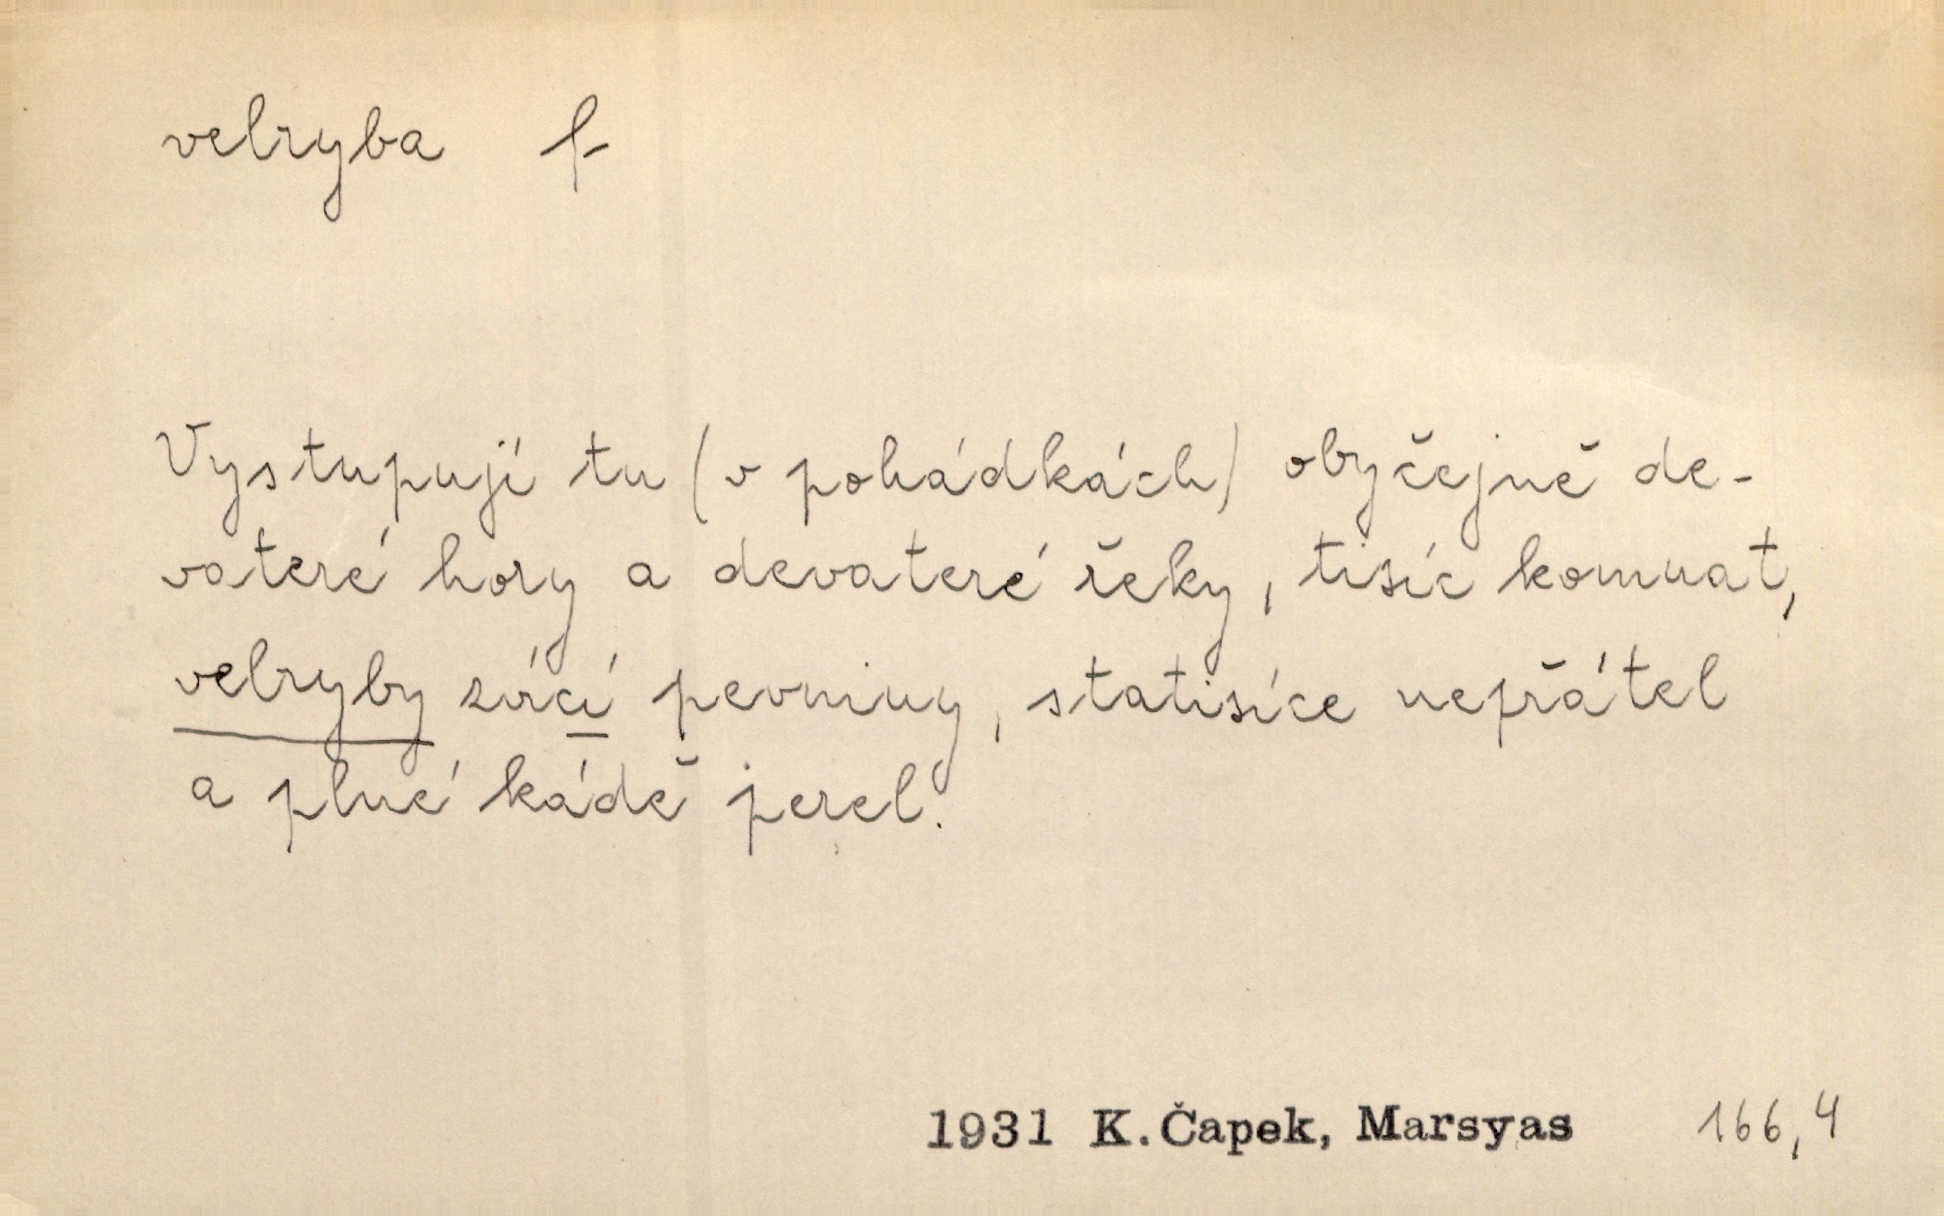 velryba f.
Vystupují tu (v pohádkách) obyčejně de-
vateré hory a devateré řeky, tisíc komnat,
velryby zvící pevniny, statisíce nepřátel
a plné kádě perel.
1931 K. Čapek, Marsyas 166,4